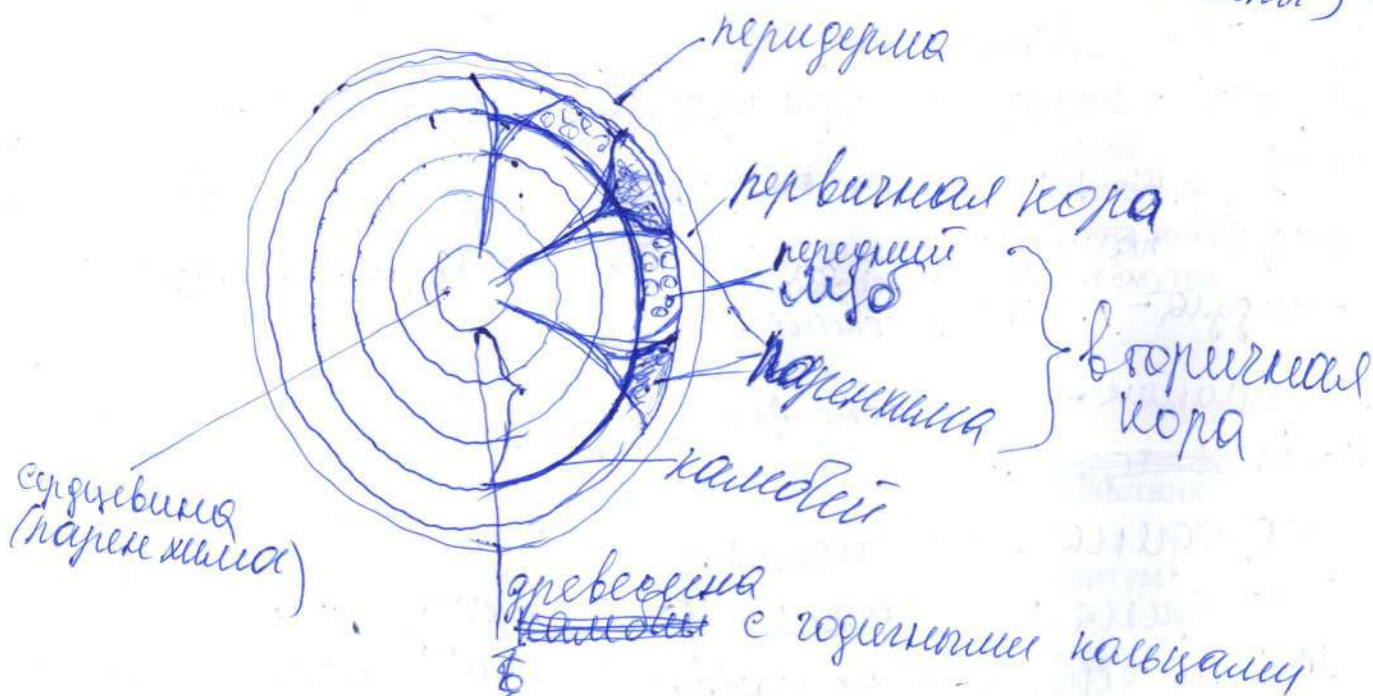 перидерма
первичная кора
передний
луб
паренхима
вторичная
кора
камбий
сердцевина
(паренхима)
древесина
с годичными кольцами